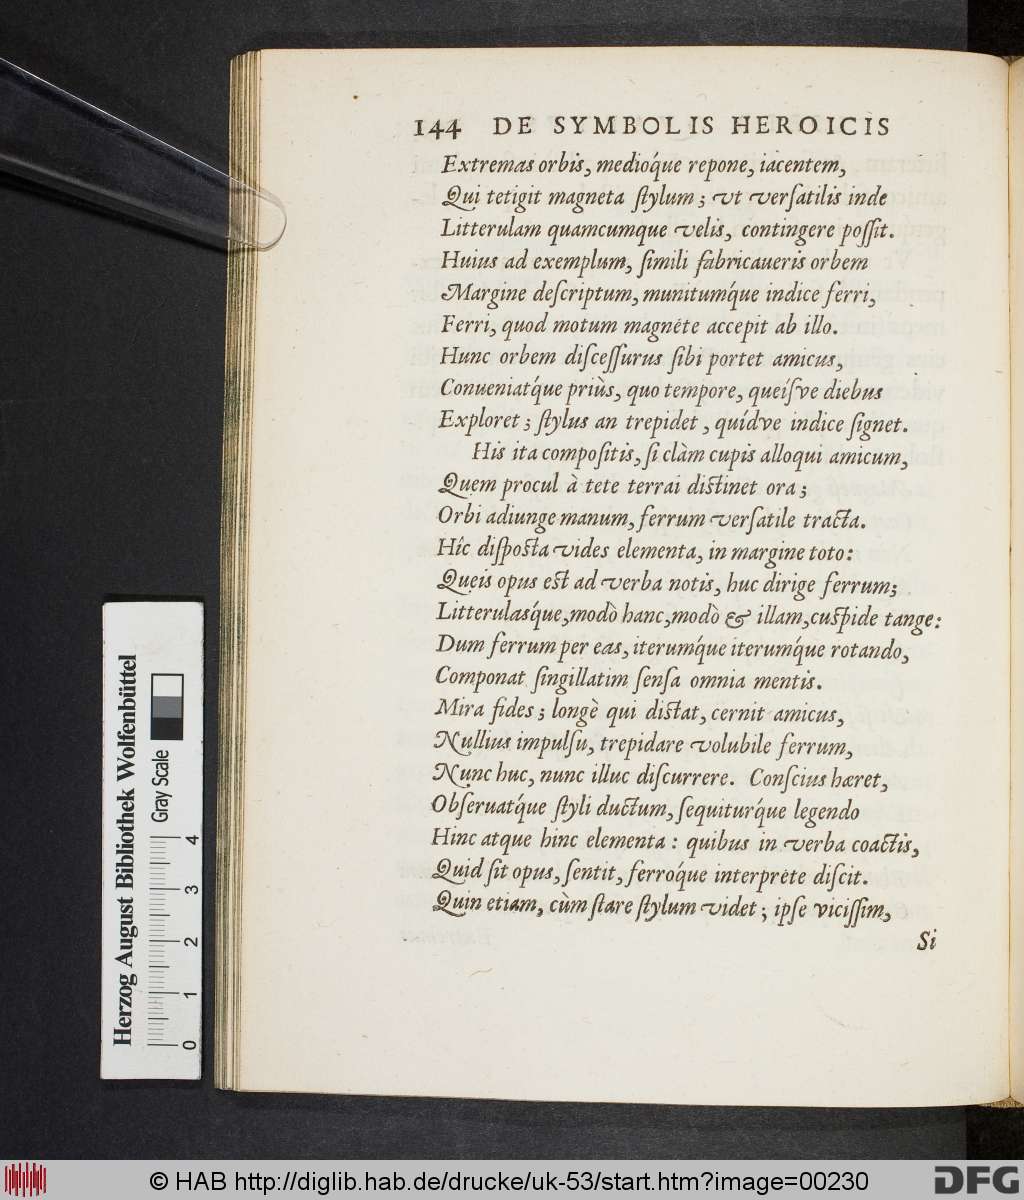 144 DE SYMBOLIS HEROICIS
Extremas orbis, medióque repone, iacentem,
Qui tetigit magneta ſtylum; vt verſatilis inde
Litterulam quamcumque velis, contingere poſſit.
Huius ad exemplum, ſimili fabricaueris orbem
Margine deſcriptum, munitumq́ue indice ferri,
Ferri, quod motum magnete accepit ab illo.
Hunc orbem diſceſſurus ſibi portet amicus,
Conueniatq́ue priùs, quo tempore, queíſve diebus
Exploret; ſtylus an trepidet, quídve indice ſignet.
His ita compoſitis, ſi clàm cupis alloqui amicum,
Quem procul à tete terrai diſtinet ora;
Orbi adiunge manum, ferrum verſatile tracta.
Hîc diſpoſta vides elementa, in margine toto:
Queis opus eſt ad verba notis, huc dirige ferrum;
Litterulasq́ue, modò hanc, modò & illam, cuſpide tange:
Dum ferrum per eas, iterumq́ue iterumq́ue rotando,
Componat ſingillatim ſenſa omnia mentis.
Mira fides; longè qui diſtat, cernit amicus,
Nullius impulſu, trepidare volubile ferrum,
Nunc huc, nunc illuc diſcurrere. Conſcius hæret,
Obſeruatq́ue ſtyli ductum, ſequiturq́ue legendo
Hinc atque hinc elementa: quibus in verba coactis,
Quid ſit opus, ſentit, ferróque interprete diſcit.
Quin etiam, cùm ſtare ſtylum videt; ipſe viciſſim,
Si
Herzog August Bibliothek Wolfenbüttel
Gray Scale
0 1 2 3 4
© HAB http://diglib.hab.de/drucke/uk-53/start.htm?image=00230
DFG